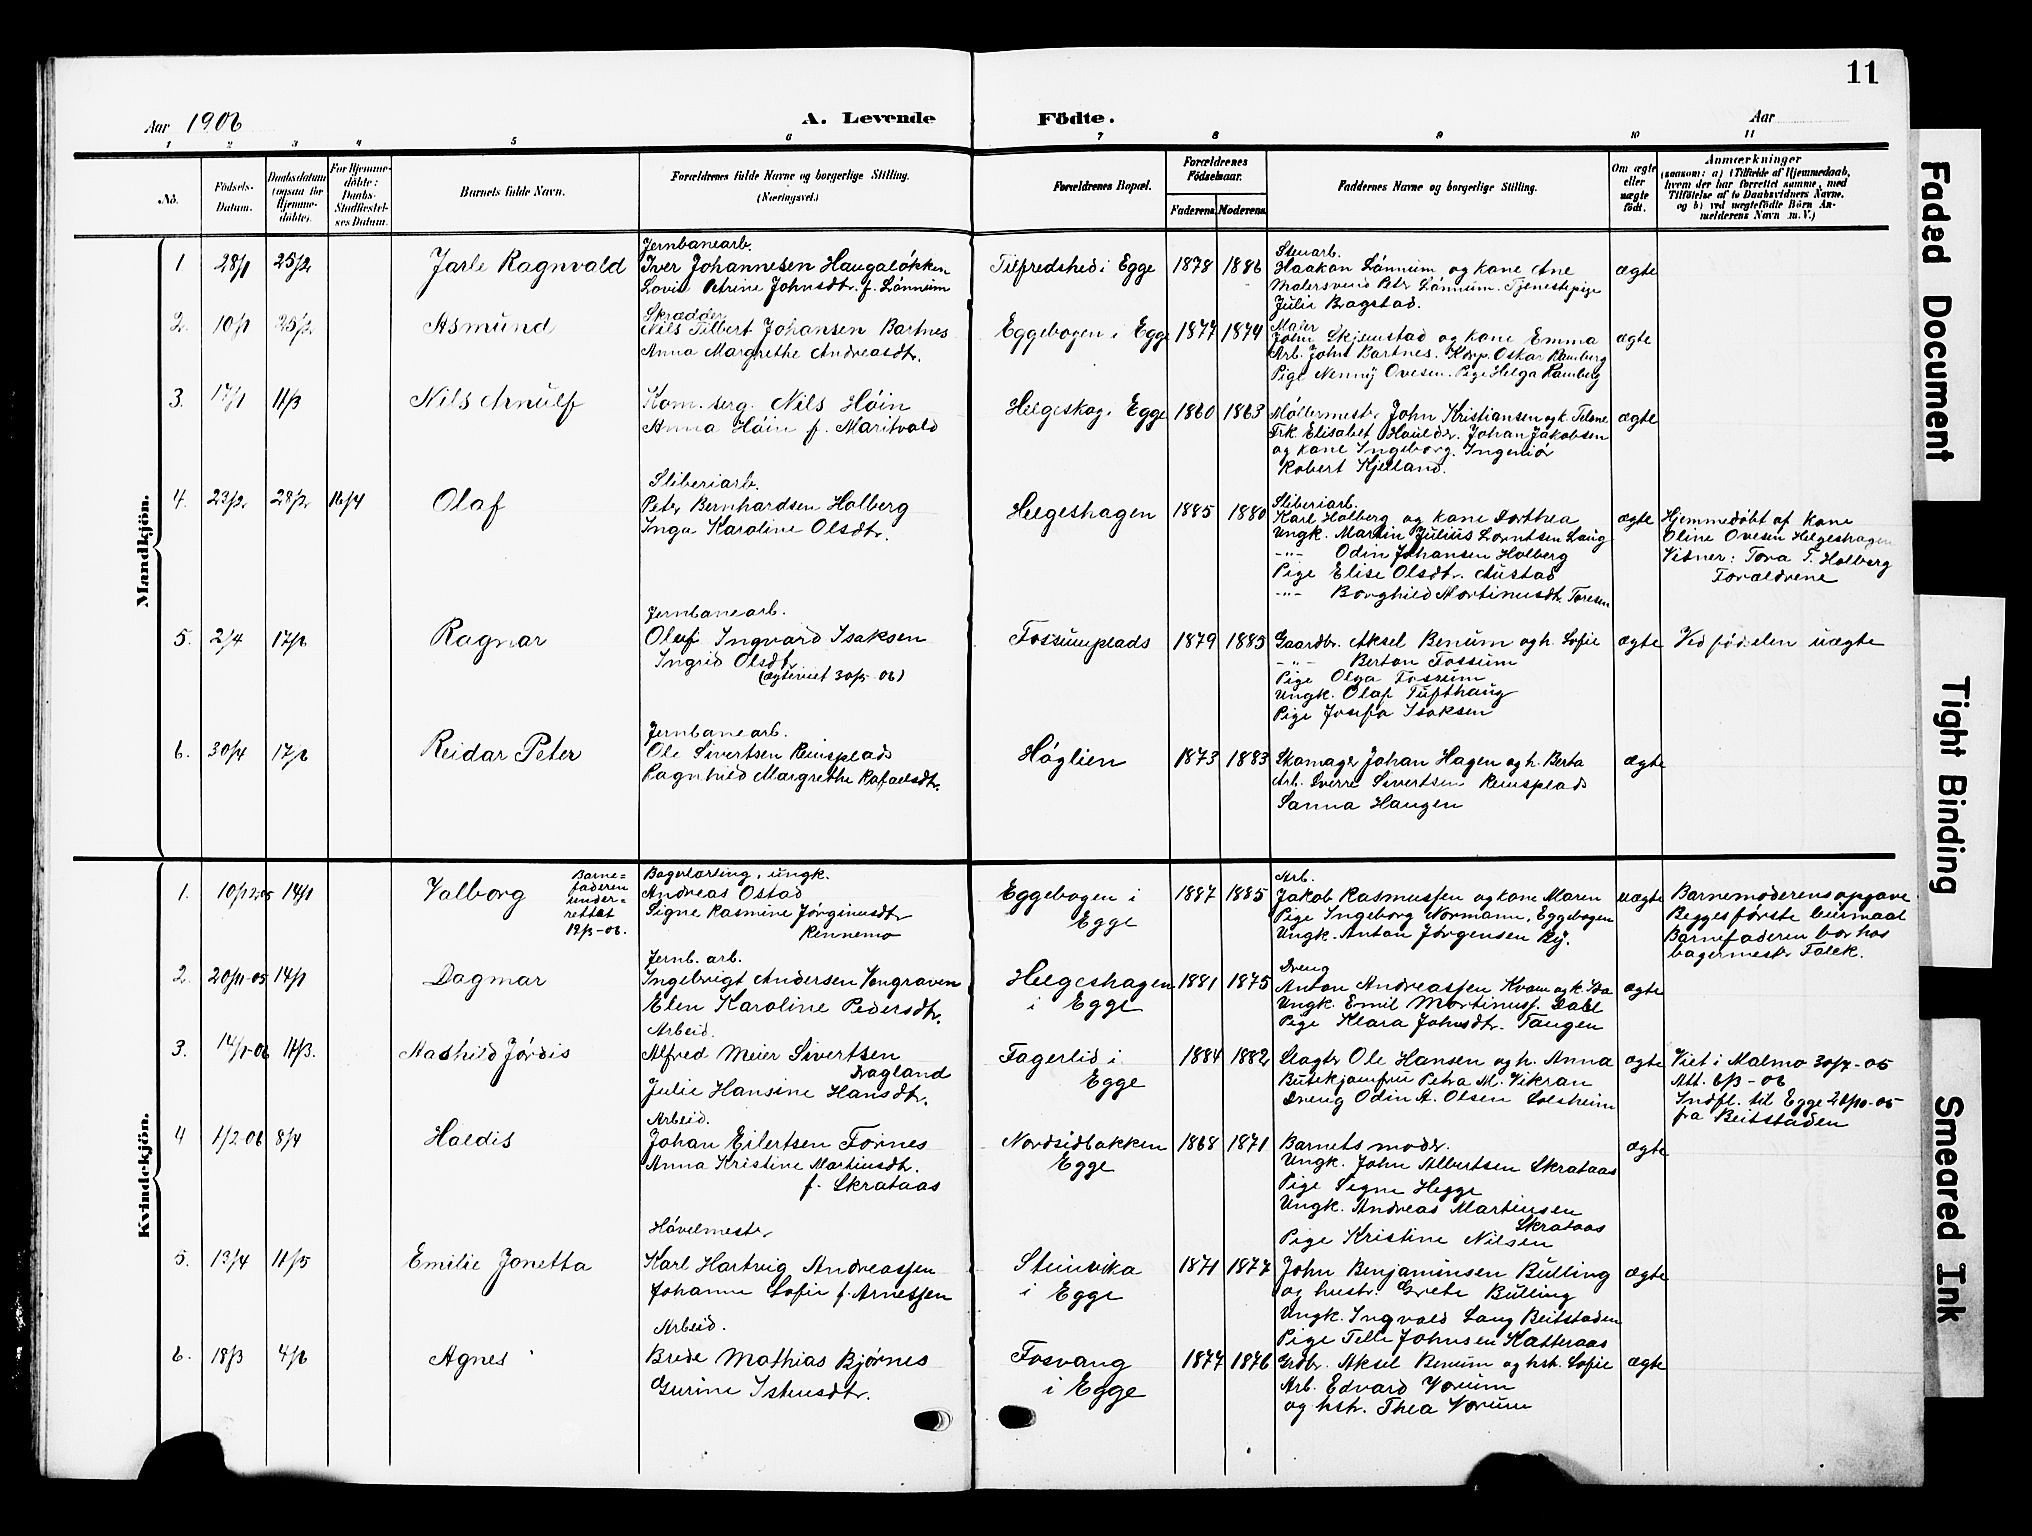 11
Aar 1906
A. Levende Födte.
Aar
1 2 3 4 5 6 7 8 9 10 11
No.
Födsels-Datum.
Daabsdatum (ogsaa for Hjemme-döbte).
For Hjemme-döbte: Daabs-Stadfæstel-ses Datum.
Barnets fulde Navn.
Forældrenes fulde Navne og borgerlige Stilling.
(Næringsvei.)
Forældrenes Bopæl.
Forældrenes Födselsaar.
Faderens. Moderens.
Faddernes Navne og borgerlige Stilling.
Om ægte eller uægte födt.
Anmærkninger
(saasom: a) i Tilfælde af Hjemmedaab, hvem der har forrettet samme, med Tilföielse af to Daabsvidners Navne, og b) ved uægtefödte Börn An-melderens Navn m. V.)
Mandkjön.
1 28/1 25/2 Jarle Ragnvald
Jernbanearb.
Iver Johannesen Haugaløkken
Lovise Petrine Johnsdtr. f. Lønnum
Tilfredshed i Egge 1878 1886
Stenarb.
Haakon Lønnum og kone Ane
Malersvend Petr Lønnum. Tjenestepige
Julie Bragstad.
ægte
2. 10/1 25/2 Asmund
Skrædder
Nils Tilbert Johansen Bartnes
Anna Margrethe Andreasdtr.
Eggebogen i Egge 1877 1874
Maler
John Skjenstad og kone Emma
Arb. John Bartnes. Korp. Oskar Ramberg
Pige Nenny Ovesen. Pige Helga Ramberg
ægte
3. 17/1 11/3 Nils Arnulf
Kom. serg. Nils Höin
Anna Höin f. Maritvold
Helgeskog i Egge 1860 1863
Møllermestr John Kristiansen og k. Telone
Frk. Elisabet Hauldr. Johan Jakobsen
og kone Ingeborg. Ingeniør
Robert Kjelland.
ægte
4. 23/2 28/2 16/4 Olaf
Sliberiarb.
Peter Bernhardsen Holberg
Inga Karoline Olsdtr.
Helgeshagen 1885 1880
Sliberiarb.
Karl Holberg og kone Dorthea
Ungk. Martin Julius Lorntsen Laug
-"- Odin Johansen Holberg
Pige Elise Olsdtr. Austad
-"- Borghild Mortinusdtr. Toresen
ægte
Hjemmedøbt af kone
Oline Ovesen Helgeshagen
Vidner: Tora T. Holberg
Forældrene
5. 2/4 17/6 Ragnar
Jernbanearb.
Oluf Ingvard Isaksen
Ingrid Olsdtr
(ægteviet 30/5-06)
Fossumplads 1879 1885
Gaardbr. Aksel Benum og h. Sofie
-"- Berton Fossum
Pige Olga Fossum
Ungk. Olaf Tufthaug
Pige Josefa Isaksen
ægte
Ved fødselen uægte
6. 30/4 17/6 Reidar Peter
Jernbanearb.
Ole Sivertsen Reinsplads
Ragnhild Margrethe Rafaelsdtr.
Høglien 1873 1883
Skomager Johan Hagen og h. Berta
Arb. Sverre Sivertsen Reinsplads
Sanna Haugen
ægte
Kvindekjön.
1. 10/12 05 14/1 Valborg
Barne-
faderen
under-
rettet
12/3-06.
Bagerlærling, ungk.
Andreas Ostad
Signe Rasmine Jørginusdtr
Rennemo
Eggebogen i
Egge
1887 1885
Arb.
Jakob Rasmussen og kone Maren
Pige Ingeborg Normann, Eggebogen
Ungk. Anton Jørgensen Ry.
uægte
Barnemoderens opgave
Begges første leiermaal
Barnefaderen bor hos
bagermestr Falck.
2. 20/11-05 14/1 Dagmar
Jernb. arb.
Ingebrigt Andersen Vongraven
Elen Karoline Pedersdtr.
Helgeshagen
i Egge
1881 1875
Dreng
Anton Andreassen Kvam og k. Ida
Ungk. Emil Mortinuss. Dahl
Pige Klara Johnsdtr. Tangen
ægte
3. 14/1-06 11/3. Aashild Jørdis
Arbeid.
Alfred Meier Sivertsen
Dragland
Julie Hansine Hansdtr.
Fagerlid i
Egge
1884 1882
Slagtr Ole Hansen og h. Anna
Butikjomfru Petra M. Vikran
Dreng Odin A. Olsen Solsheim
ægte
Viet i Malmo 30/7-05
Att. 6/3-06
Indfl. til Egge 26/10-05
fra Beitstaden
4 1/2-06 8/4 Haldis
Arbeid.
Johan Eilertsen Fornes
Anna Kristine Martinsdtr.
f. Skrataas
Nordsidbakken
Egge
1868 1871
Barnets moder.
Ungk. John Albertsen Skrataas
Pige Signe Hegge
Ungk. Andreas Martinsen
Skrataas
Pige Kristine Nilsen
ægte
5. 13/4 11/5 Emilie Jonetta
Høvelmestr
Karl Hartvig Andreassen
Johanne Sofie f. Arnessen
Steinvika
i Egge
1871 1877
John Benjaminsen Bulling
og hustr. Grete Bulling
Ungk. Ingvald Laug Beitstaden
Pige Telle Johnsen Hatteraas
ægte
6. 18/3 4/6 Agnes
Arbeid.
Brede Mathias Bjørnes
Gurine Istusdtr.
Fosvang
i Egge
1877 1876
Grdbr. Aksel Benum og hst. Sofie
Arb. Edvard Vorum
og hstr. Thea Vorum
ægte
Faded Document
Tight Binding
Smeared Ink